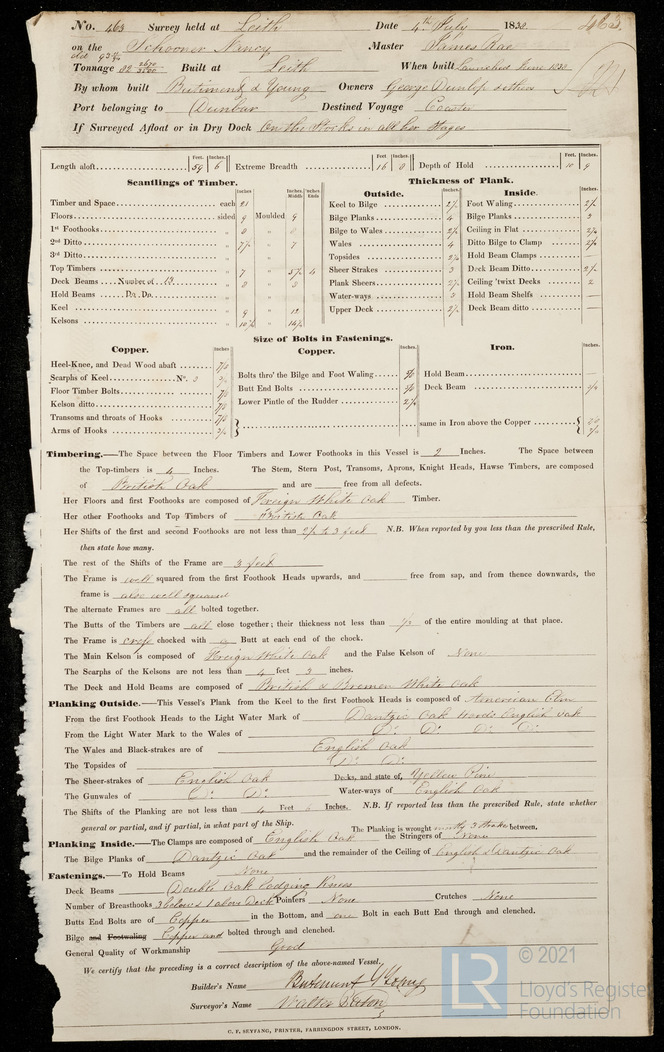 No. 463 Survey held at Leith Date 4th July 1838 463
on the Schooner Nancy Master James Rae
old 93
Tonnage 82 Built at Leith When built Launched June 1838
By whom built & Young Owners George Dunlop & others
Port belonging to Dunbar Destined Voyage Coaster
If Surveyed Afloat or in Dry Dock On the Stocks in all her Stages
Feet. Inches. Feet. Inches. Feet. Inches.
Length aloft 59 6 Extreme Breadth 16 0 Depth of Hold 10 9
Scantlings of Timber.
Inches. Inches. Middle Inches. Ends
Timber and Space each 21
Floors sided 9 Moulded 9
1st Foothooks " 8 " 8
2nd Ditto " 7½ " 7
3rd Ditto " "
Top Timbers " 7 " 5½ 4
Deck Beams Number of 13 " 8 " 8
Hold Beams Do. Do. " "
Keel " 9 " 12
Kelsons " 10½ " 16½
Thickness of Plank.
Outside. Inches. Inside. Inches.
Keel to Bilge 2½ Foot Waling 2½
Bilge Planks 4 Bilge Planks 3
Bilge to Wales 2½ Ceiling in Flat 2½
Wales 4 Ditto Bilge to Clamp 2½
Topsides 2½ Hold Beam Clamps —
Sheer Strakes 3 Deck Beam Ditto 2½
Plank Sheers 2½ Ceiling 'twixt Decks 2
Water-ways 3 Hold Beam Shelfs —
Upper Deck 2½ Deck Beam ditto —
Size of Bolts in Fastenings.
Copper. Inches. Copper. Inches. Iron. Inches.
Heel-Knee, and Dead Wood abaft 7/8
Scarphs of Keel No. 3
Floor Timber Bolts 7/8
Kelson ditto 7/8
Transoms and throats of Hooks 7/8
Arms of Hooks 3/4
Bolts thro' the Bilge and Foot Waling 5/8
Butt End Bolts 5/8
Lower Pintle of the Rudder 2¼
Hold Beam —
Deck Beam 3/4
same in Iron above the Copper
Timbering.—The Space between the Floor Timbers and Lower Foothooks in this Vessel is 2 Inches. The Space between
the Top-timbers is 4 Inches. The Stem, Stern Post, Transoms, Aprons, Knight Heads, Hawse Timbers, are composed
of British Oak and are free from all defects.
Her Floors and first Foothooks are composed of Foreign White Oak Timber.
Her other Foothooks and Top Timbers of British Oak
Her Shifts of the first and second Foothooks are not less than 2½ to 3 feet N.B. When reported by you less than the prescribed Rule,
then state how many.
The rest of the Shifts of the Frame are 3 feet
The Frame is well squared from the first Foothook Heads upwards, and free from sap, and from thence downwards, the
frame is also well squared
The alternate Frames are all bolted together.
The Butts of the Timbers are all close together; their thickness not less than ⅓ of the entire moulding at that place.
The Frame is cross chocked with a Butt at each end of the chock.
The Main Kelson is composed of Foreign White Oak and the False Kelson of None
The Scarphs of the Kelsons are not less than 4 feet 3 inches.
The Deck and Hold Beams are composed of British & Bremen White Oak
Planking Outside.—This Vessel's Plank from the Keel to the first Foothook Heads is composed of American Elm
From the first Foothook Heads to the Light Water Mark of Dantzic Oak Hoods English oak
From the Light Water Mark to the Wales of Do. Do. Do. Do.
The Wales and Black-strakes are of English Oak
The Topsides of Do. Do.
The Sheer-strakes of English Oak Decks, and state of, Yellow Pine
The Gunwales of Do. Do. Water-ways of English Oak
The Shifts of the Planking are not less than 4 Feet 6 Inches. N.B. If reported less than the prescribed Rule, state whether
general or partial, and if partial, in what part of the Ship. The Planking is wrought mostly 3 strakes between.
Planking Inside.—The Clamps are composed of English Oak the Stringers of None
The Bilge Planks of Dantzic Oak and the remainder of the Ceiling of English & Dantzic Oak
Fastenings.—To Hold Beams None
Deck Beams Double Oak Lodging Knees
Number of Breasthooks 3 below & 1 above Deck Pointers None Crutches None
Butts End Bolts are of Copper in the Bottom, and one Bolt in each Butt End through and clenched.
Bilge and Footwaling Copper and bolted through and clenched.
General Quality of Workmanship Good
We certify that the preceding is a correct description of the above-named Vessel.
Builder's Name & Young
Surveyor's Name Walter Paton
C. F. SEYFANG, PRINTER, FARRINGDON STREET, LONDON.
LR © 2021
Lloyd's Register
Foundation